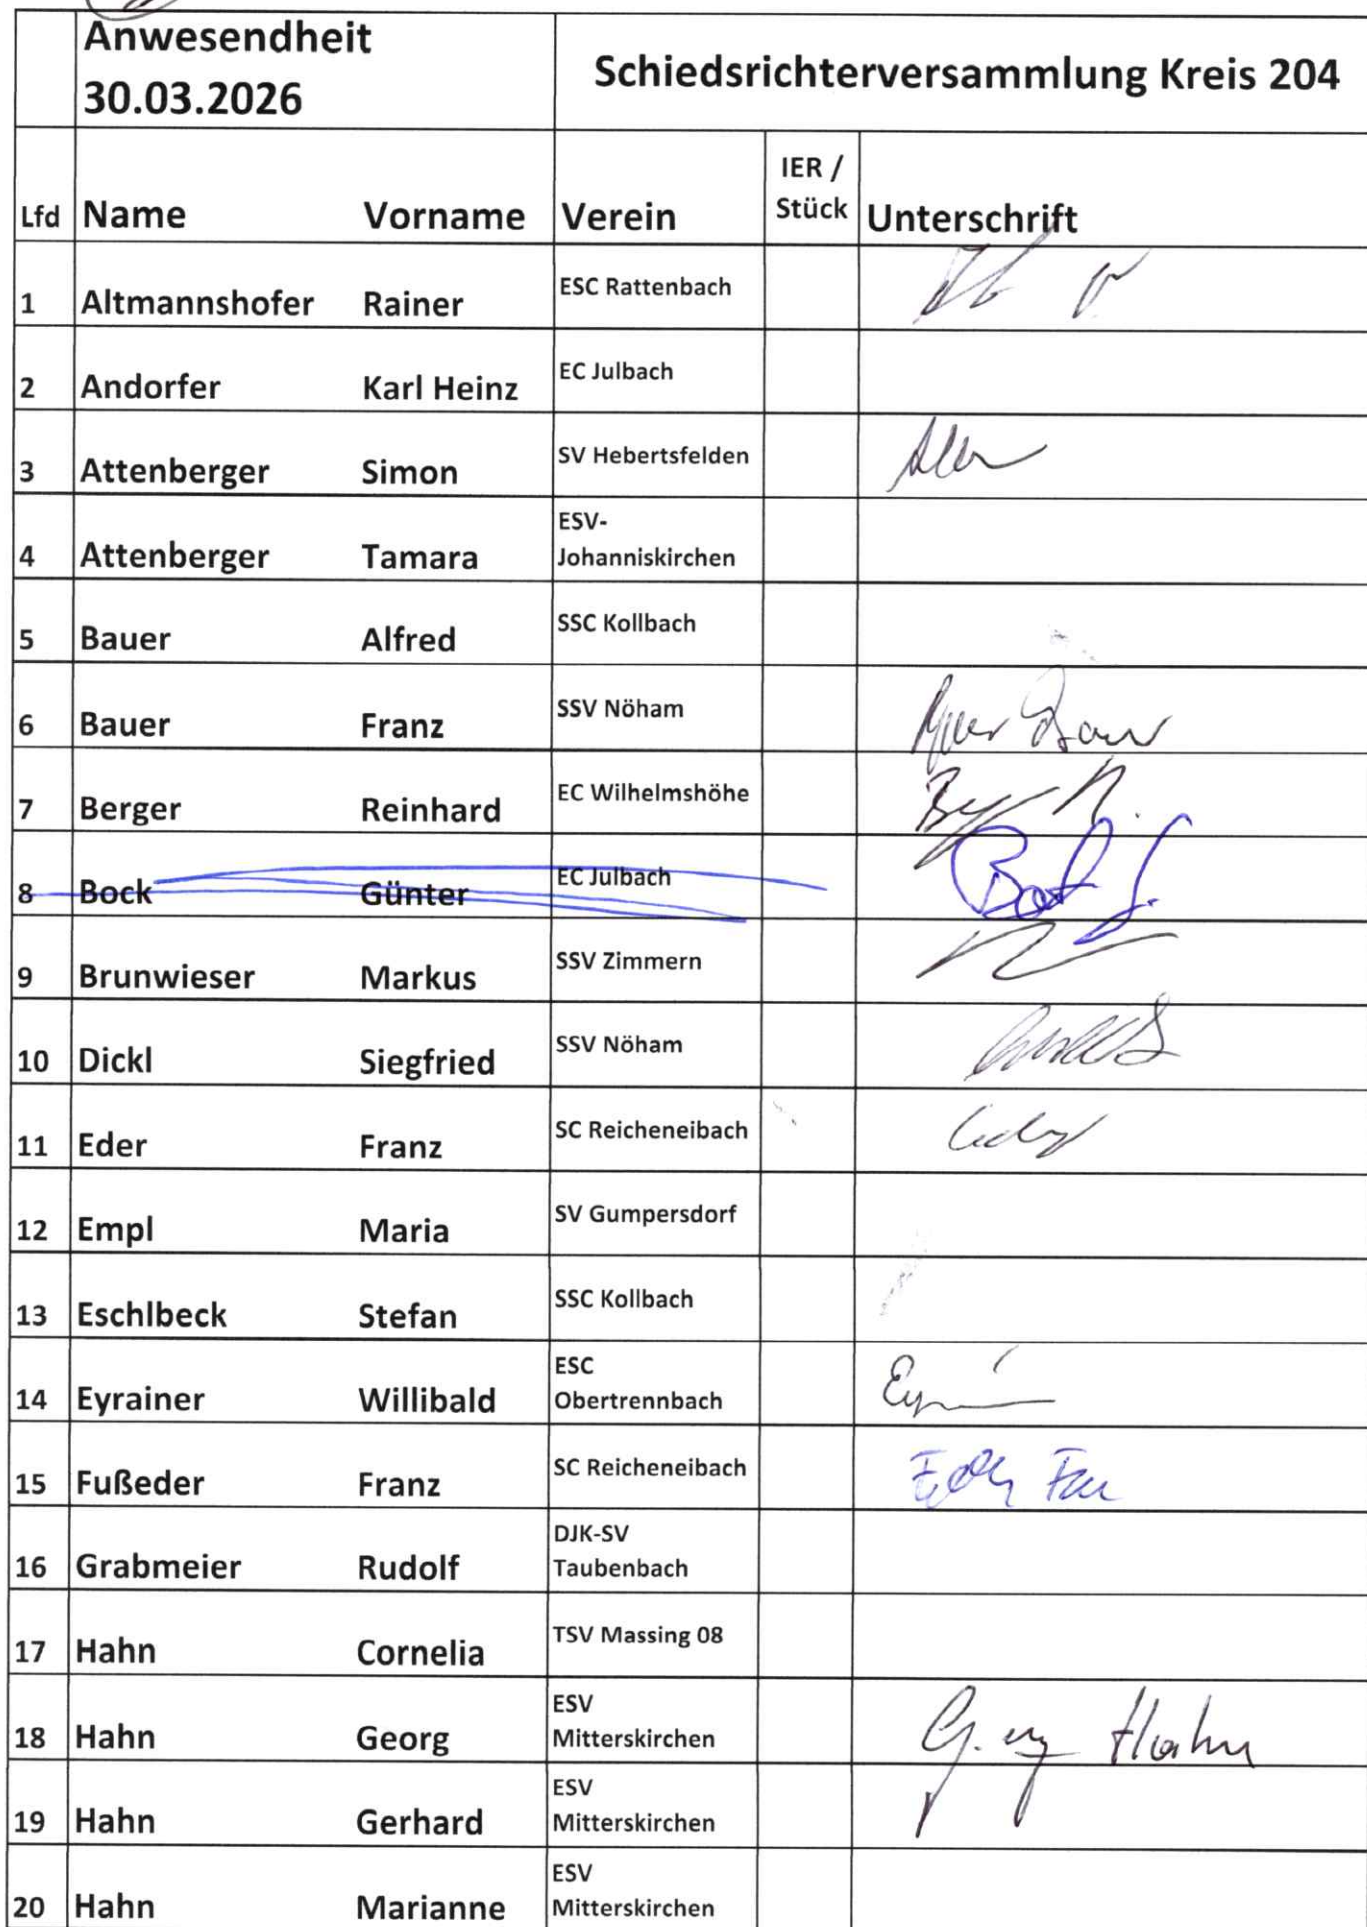 Anwesendheit
30.03.2026
Schiedsrichterversammlung Kreis 204
IER /
Stück
Lfd Name Vorname Verein Unterschrift
1 Altmannshofer Rainer ESC Rattenbach
2 Andorfer Karl Heinz EC Julbach
3 Attenberger Simon SV Hebertsfelden
4 Attenberger Tamara ESV-
Johanniskirchen
5 Bauer Alfred SSC Kollbach
6 Bauer Franz SSV Nöham
7 Berger Reinhard EC Wilhelmshöhe
8 Bock Günter EC Julbach
9 Brunwieser Markus SSV Zimmern
10 Dickl Siegfried SSV Nöham
11 Eder Franz SC Reicheneibach
12 Empl Maria SV Gumpersdorf
13 Eschlbeck Stefan SSC Kollbach
14 Eyrainer Willibald ESC
Obertrennbach
15 Fußeder Franz SC Reicheneibach
16 Grabmeier Rudolf DJK-SV
Taubenbach
17 Hahn Cornelia TSV Massing 08
18 Hahn Georg ESV
Mitterskirchen Hahn
19 Hahn Gerhard ESV
Mitterskirchen
20 Hahn Marianne ESV
Mitterskirchen